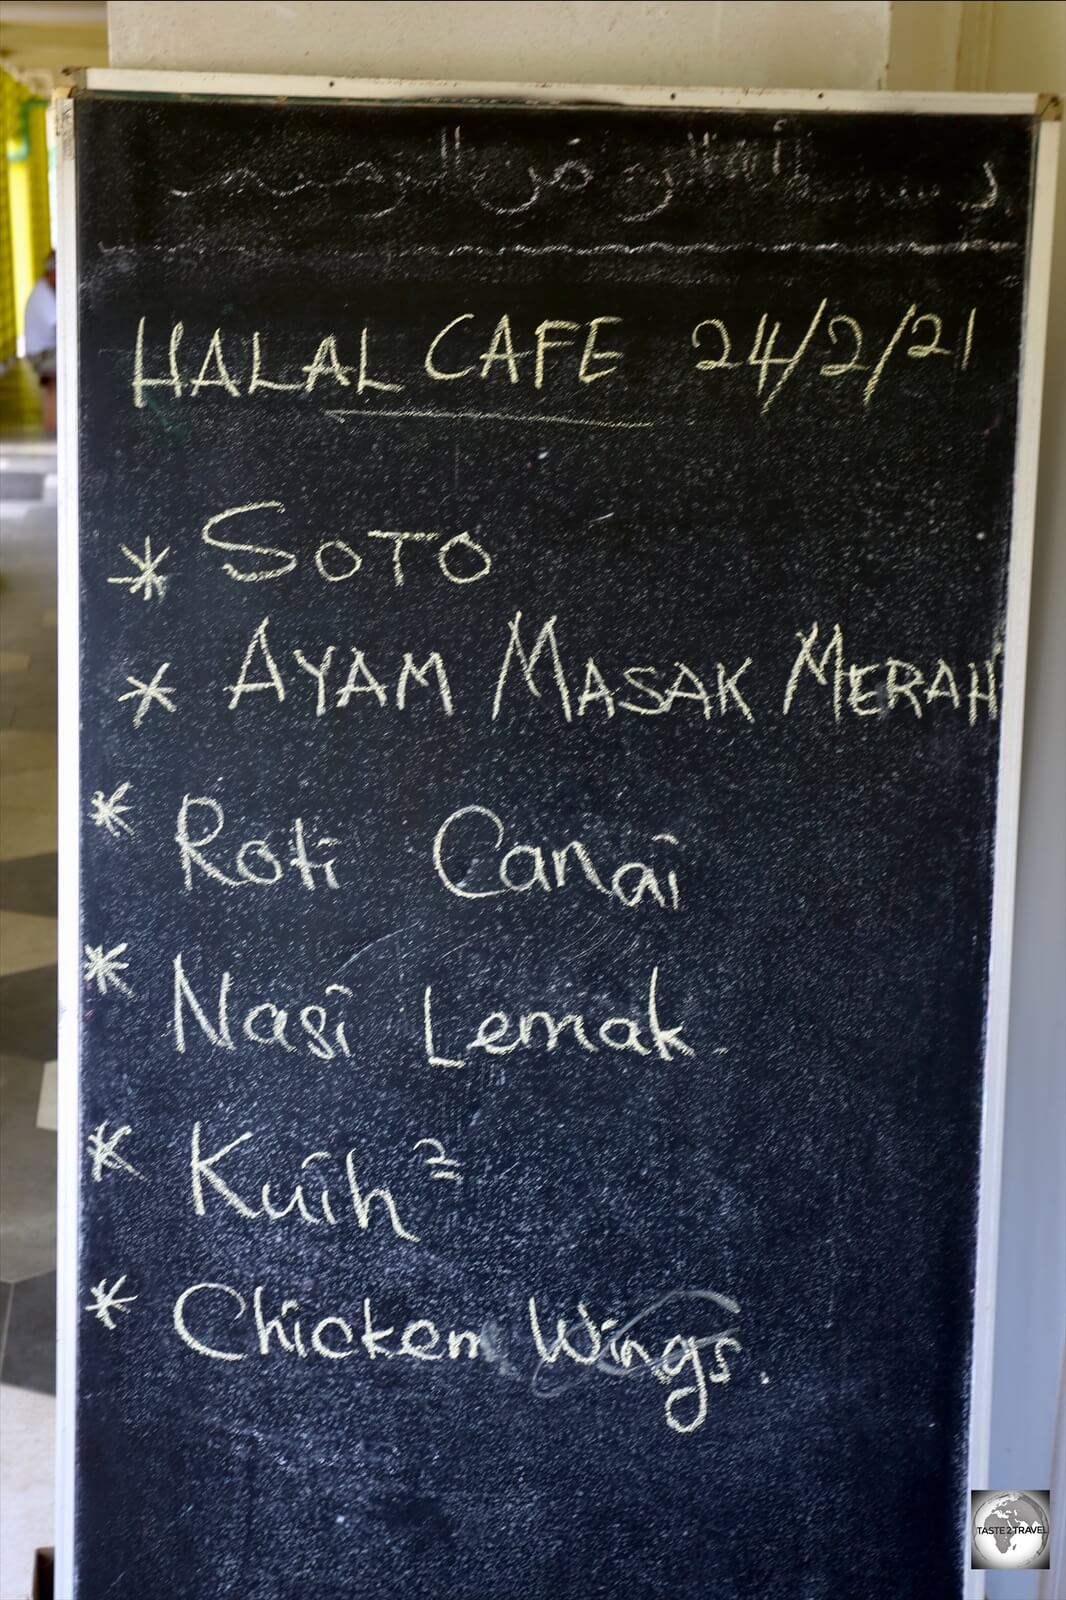 بسم الله الرحمن الرحيم
HALAL CAFE 24/2/21
* SOTO
* AYAM MASAK MERAH
* Roti Canai
* Nasi Lemak
* Kuih²
* Chicken Wings.
TASTE2TRAVEL